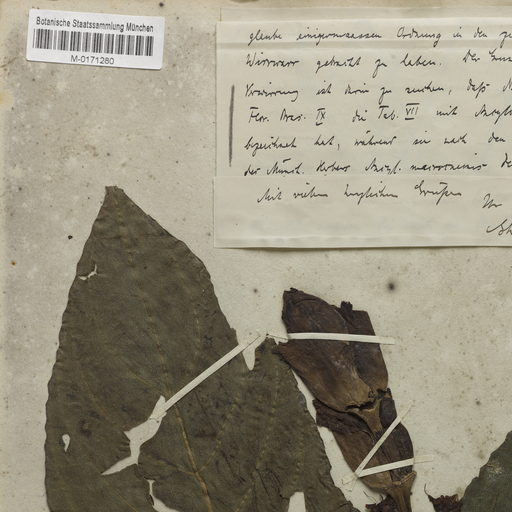 Botanische Staatssammlung München
M-0171280
glaube einigermassen Ordnung in den
Wirrwarr gebracht zu haben. Der
Verwirrung ist darin zu suchen, daß
Flor. Bras. IX die Tab. VII mit
bezeichnet hat, während sie nach den
der Münch. Herbars macronemis
Mit vielen herzlichen Grüßen